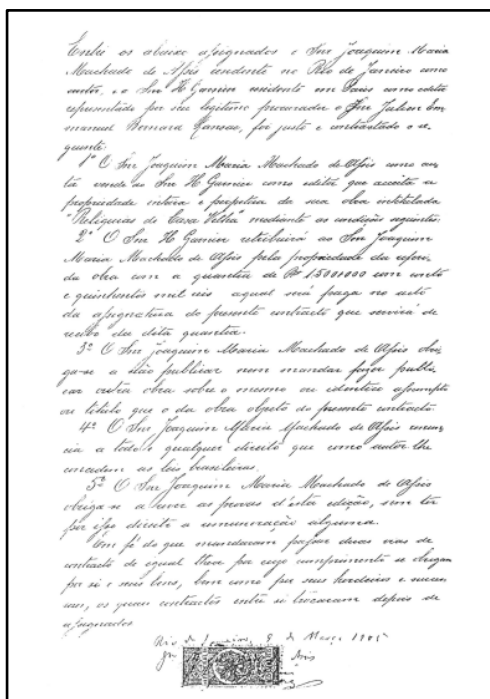 Entre os abaixo assignados o Snr Joaquim Maria
Machado de Assis residente no Rio de Janeiro como
autor, e o Snr H Garnier residente em Paris como editor
representado por seu legitimo procurador o Snr Julien Em
manuel Bernard Lansac, foi justo e contractado o se
guinte:
1º O Snr Joaquim Maria Machado de Assis como au
tor vende ao Snr H Garnier como editor que acceita a
propriedade inteira e perpetua da sua obra intitulada
"Reliquias de Casa Velha" mediante as condições seguintes:
2º O Snr H Garnier retribuirá ao Snr Joaquim
Maria Machado de Assis pela propriedade da referi
da obra com a quantia de Rs 1.500$000 um conto
e quinhentos mil reis a qual será paga no acto
da assignatura do presente contracto que servirá de
recibo da dita quantia.
3º O Snr Joaquim Maria Machado de Assis obri
ga-se a não publicar nem mandar fazer publi
car outra obra sobre o mesmo ou identico assumpto
ou titulo que o da obra objeto do presente contracto.
4º O Snr Joaquim Maria Machado de Assis renun
cia a todo e qualquer direito que como autor lhe
concedam as leis brasileiras.
5º O Snr Joaquim Maria Machado de Assis
obriga-se a rever as provas d'esta edição, sem ter
por isso direito a remuneração alguma.
Em fé do que mandaram passar duas vias de
contracto de egual theor por cujo cumprimento se obrigam
por si e seus bens, bem como por seus herdeiros e succes
sores, os quaes contractos entre si trocaram depois de
assignados
Rio de Janeiro, 8 de Março 1905
Assis